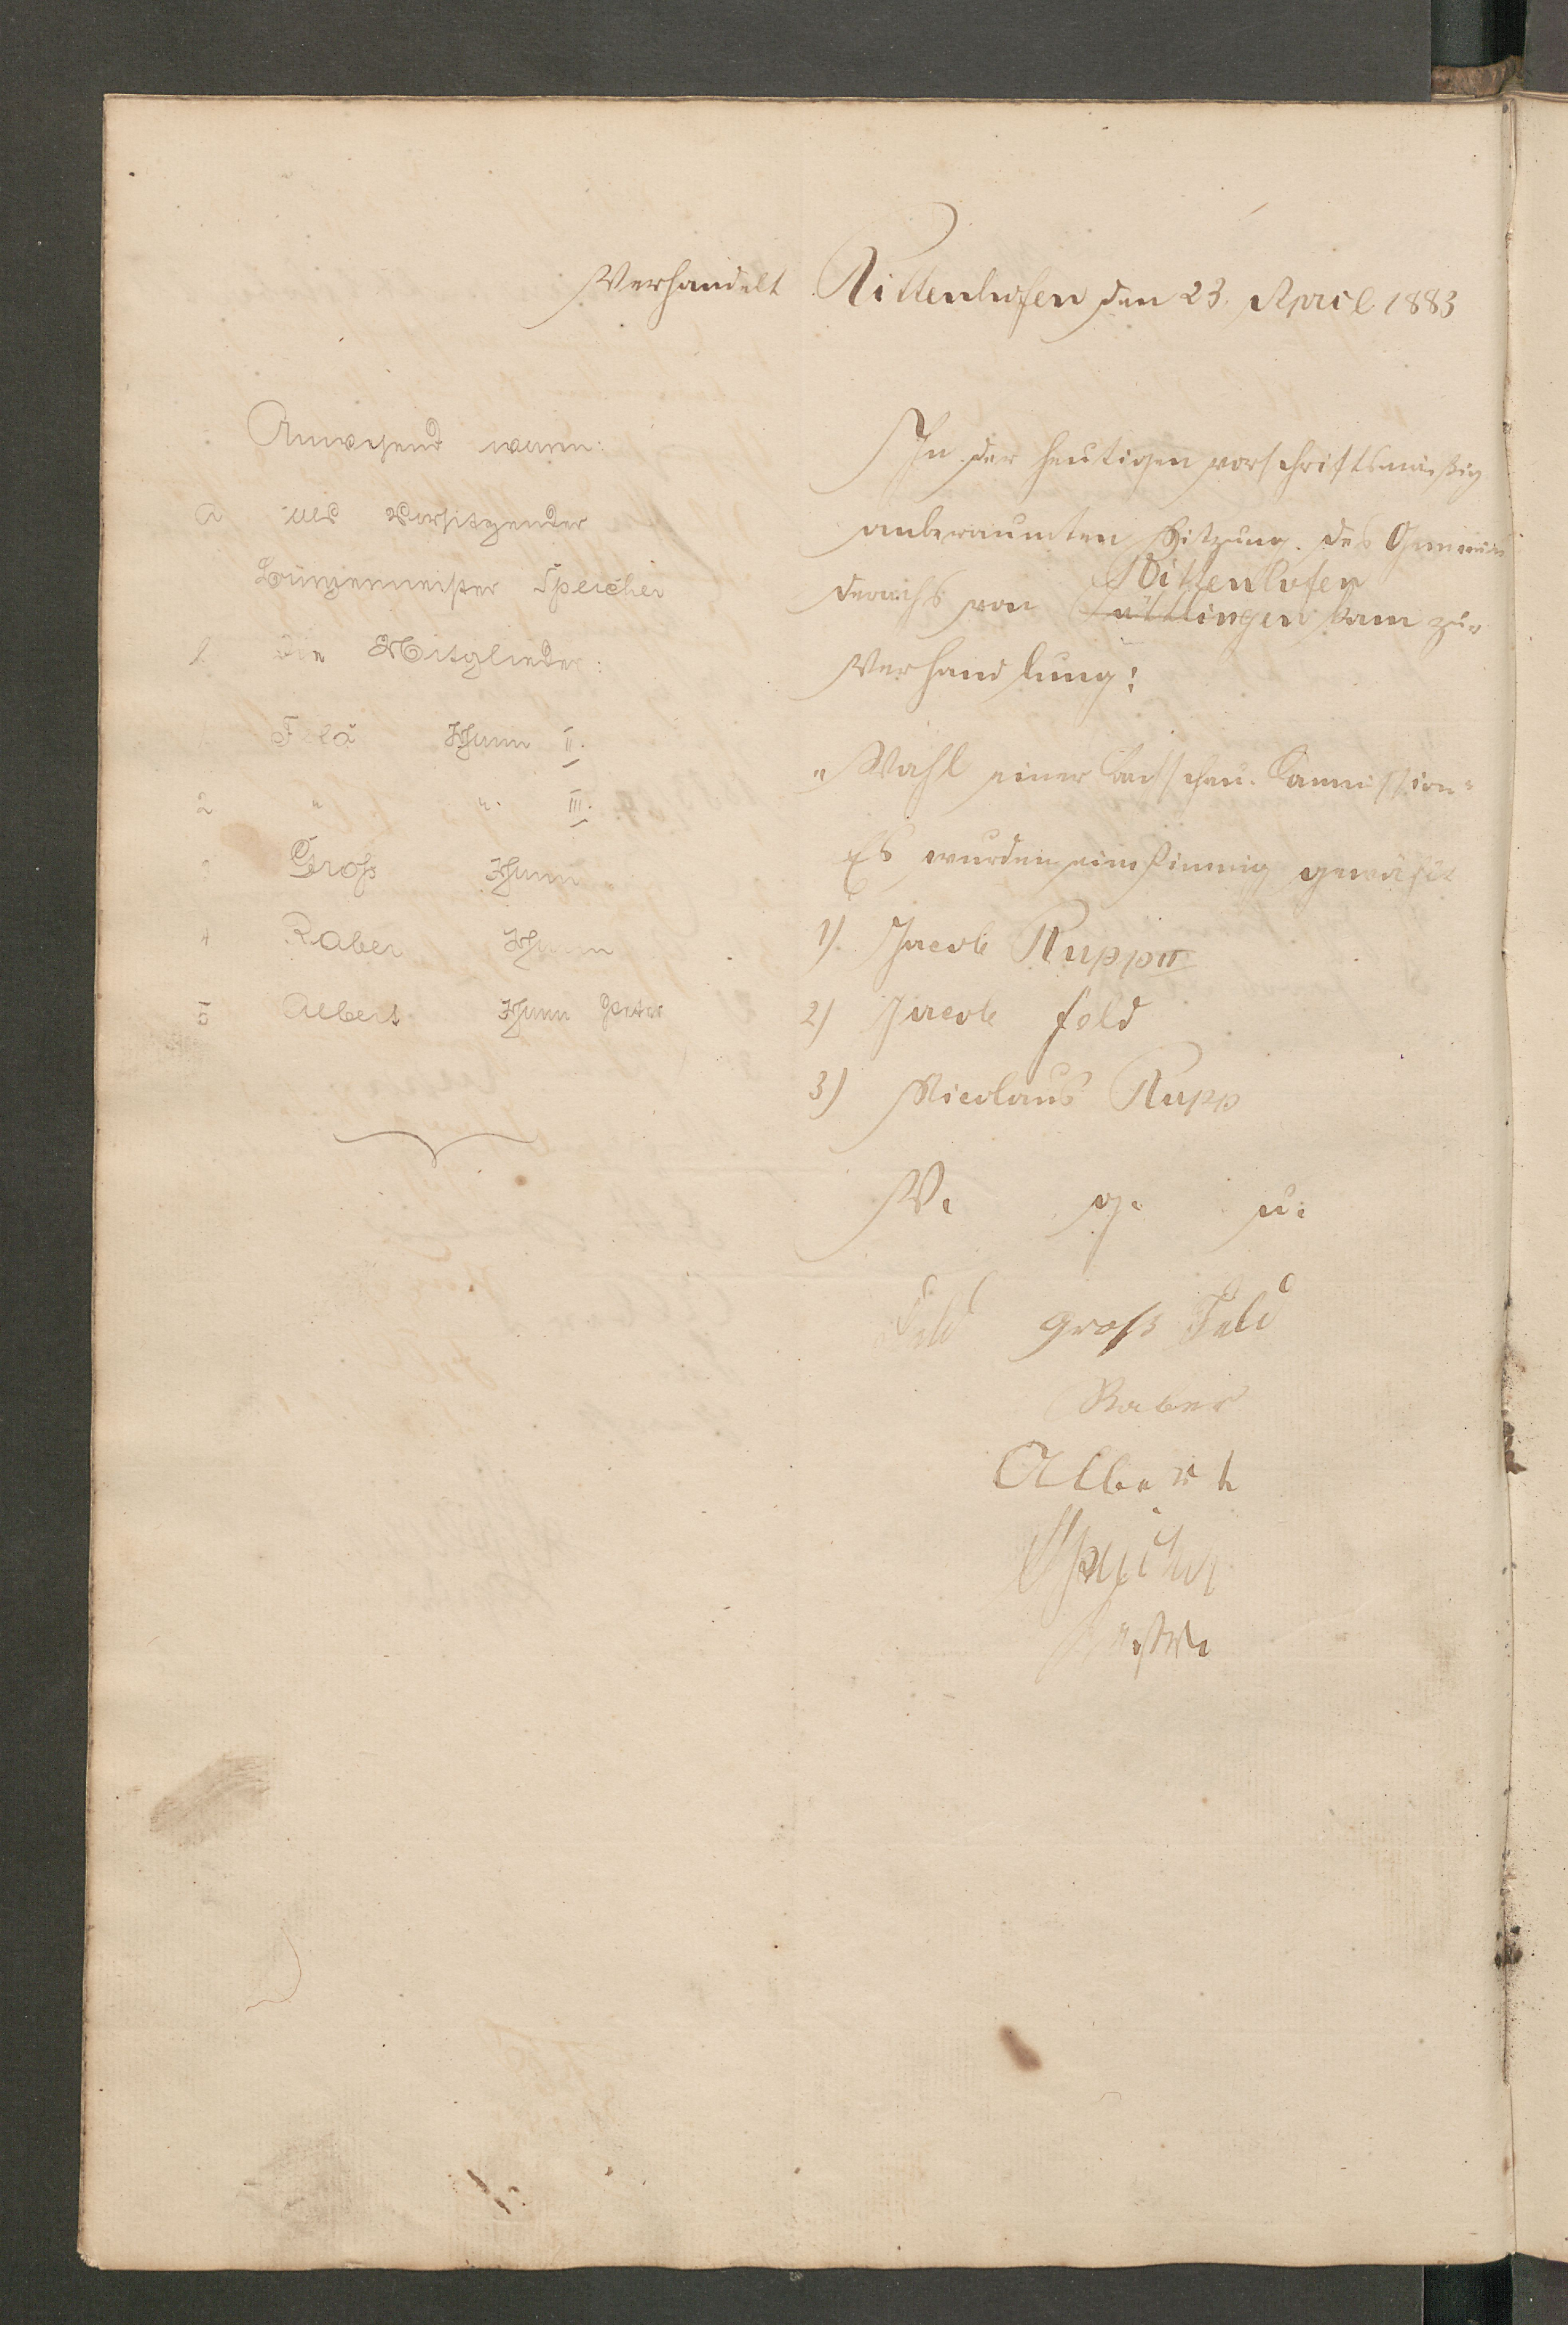 Verhandelt Rittenhofen den 23. April 1883
Anwesend waren:
a als Vorsitzender
Bürgermeister Speicher
b die Mitglieder:
Feld Johann II.
2 " " III.
3 Groß Johann
4 Raber Johann
5 Albert Johann Peter
In der heutigen vorschriftsmäßig
anberaumten Sitzung des Gemein
Rittenhofen
deraths von Güttlingen kam zur
Verhandlung:
"Wahl einer Bachschau-Commission"
Es wurden einstimmig gewählt
1) Jacob Rupp II
2) Jacob Feld
3) Nicolaus Rupp
V. g. u.
Feld Groß Feld
Raber
Albert
Speicher